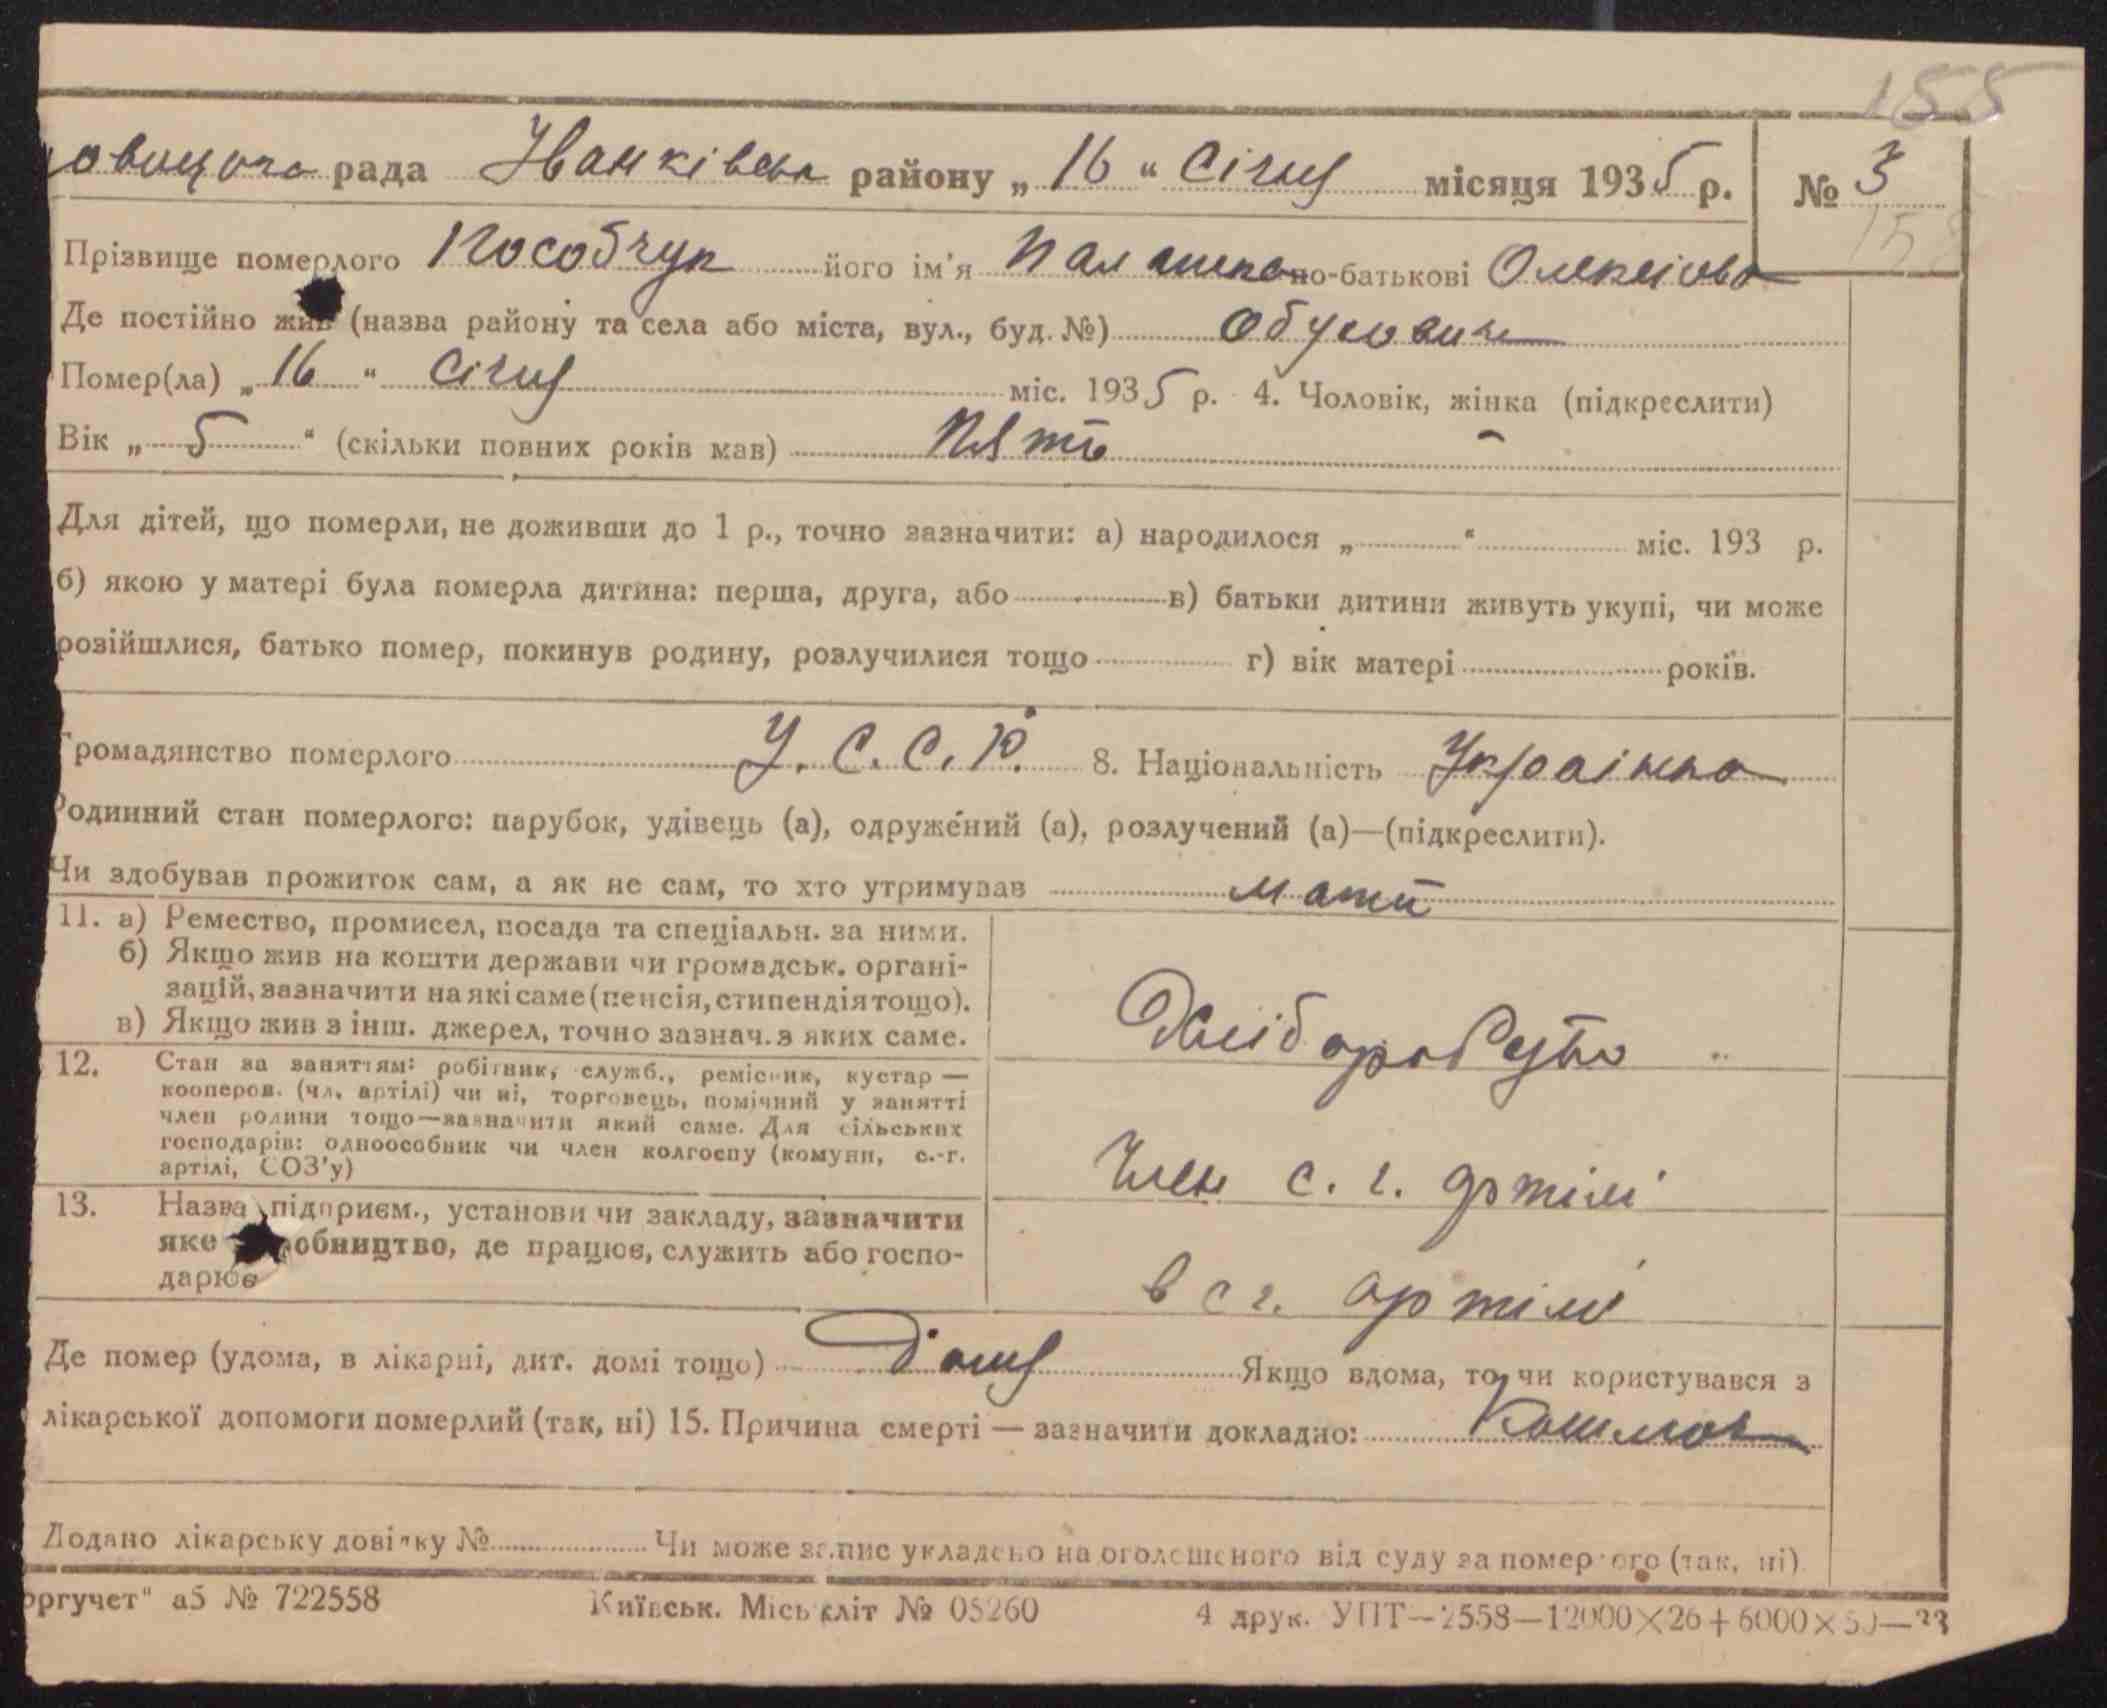 155
овицька рада Іванківськ району „ 16 “ Січня місяця 1935 р. № 3
158
Прізвище померлого Кособчук його ім'я Палашка по-батькові Олексіова
Де постійно жив (назва району та села або міста, вул., буд. №) Обуховичи
Помер(ла) „ 16 “ Січня міс. 1935 р. 4. Чоловік, жінка (підкреслити)
Вік „ 5 “ (скільки повних років мав) пять
Для дітей, що померли, не доживши до 1 р., точно зазначити: а) народилося „ “ міс. 193 р.
б) якою у матері була померла дитина: перша, друга, або в) батьки дитини живуть укупі, чи може
розійшлися, батько помер, покинув родину, розлучилися тощо г) вік матері років.
Громадянство померлого У. С. С. Р. 8. Національність Українка
Родинний стан померлого: парубок, удівець (а), одружений (а), розлучений (а)—(підкреслити).
Чи здобував прожиток сам, а як не сам, то хто утримував мати
11. а) Ремество, промисел, посада та спеціальн. за ними.
б) Якщо жив на кошти держави чи громадськ. органі-
зацій, зазначити на які саме (пенсія, стипендія тощо).
в) Якщо жив з інш. джерел, точно зазнач. з яких саме.
Хліборобство
12. Стан за заняттям: робітник, служб., ремісник, кустар —
кооперов. (чл. артілі) чи ні, торговець, помічний у занятті
член родини тощо—зазначити який саме. Для сільських
господарів: одноособник чи член колгоспу (комуни, с.-г.
артілі, СОЗ'у)
Член с. г. артілі
13. Назва підприєм., установи чи закладу, зазначити
яке обництво, де працює, служить або госпо-
дарює
в с г. артілі
Де помер (удома, в лікарні, дит. домі тощо) Дома Якщо вдома, то чи користувався з
лікарської допомоги померлий (так, ні) 15. Причина смерті — зазначити докладно: Кашлюк
Додано лікарську довідку № Чи може запис укладено на оголошеного від суду за померлого (так, ні)
оргучет" а5 № 722558 Київськ. Міськліт № 05260 4 друк. УПТ—2558—12000×26+6000×50—33